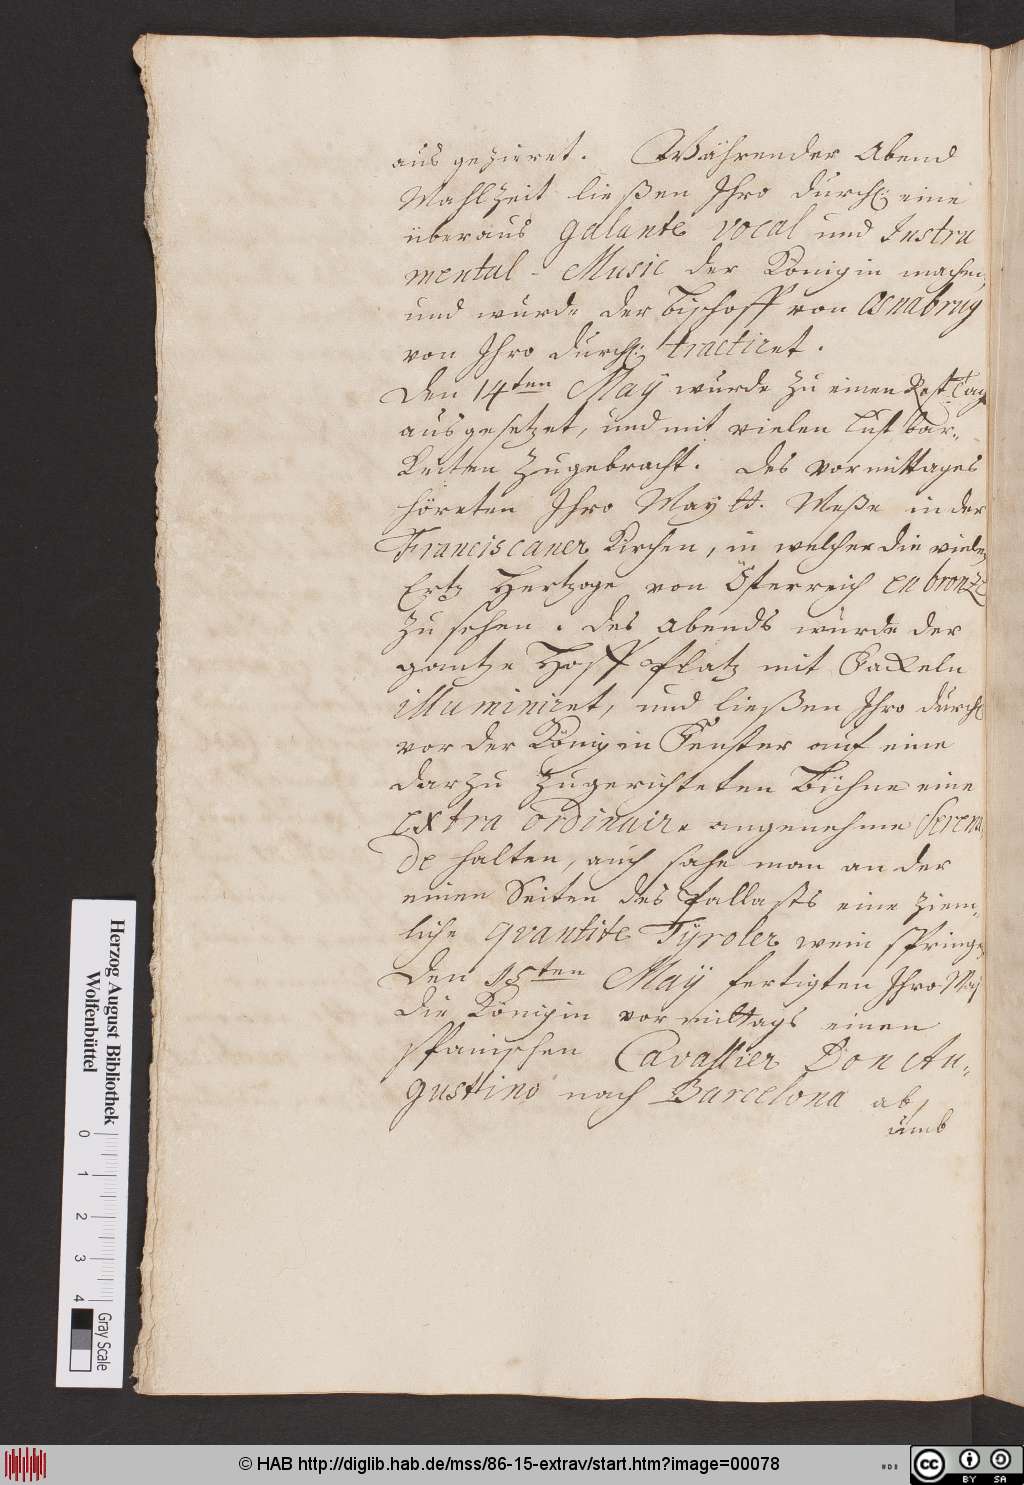 aus gezieret. Währender Abend
Mahlzeit ließen Ihro Durchl: eine
überaus galante vocal und Instru
mental - Music der Königin machen,
und wurde der Bischoff von Osnabrug
von Ihro Durchl: tractiret.
Den 14ten May wurde zu einen Rast Tag
ausgesetzet, und mit vielen Lustbar-
Keiten Zugebracht. Des vormittages
höreten Ihro Maytt. Meße in der
Franciscaner Kirchen, in welcher die vielen
Ertz Hertzoge von Österreich en bronze
zu sehen. Des abends wurde der
gantze Hoff Platz mit Fackeln
illuminiret, und ließen Ihro Durchl
vor der Königin Fenster auf eine
darzu zugerichteten Bühne eine
extra ordinaire angenehme Serena
de halten, auch sahe man an der
einen Seiten des Pallasts eine ziem-
liche quantite Tyroler wein springen
Den 15ten May fertigten Ihro May
die Königin vormittags einen
spanischen Cavallier Don Au-
gustino nach Barcelona ab,
umb
Herzog August Bibliothek
Wolfenbüttel
0 1 2 3 4
Gray Scale
© HAB http://diglib.hab.de/mss/86-15-extrav/start.htm?image=00078
cc BY SA